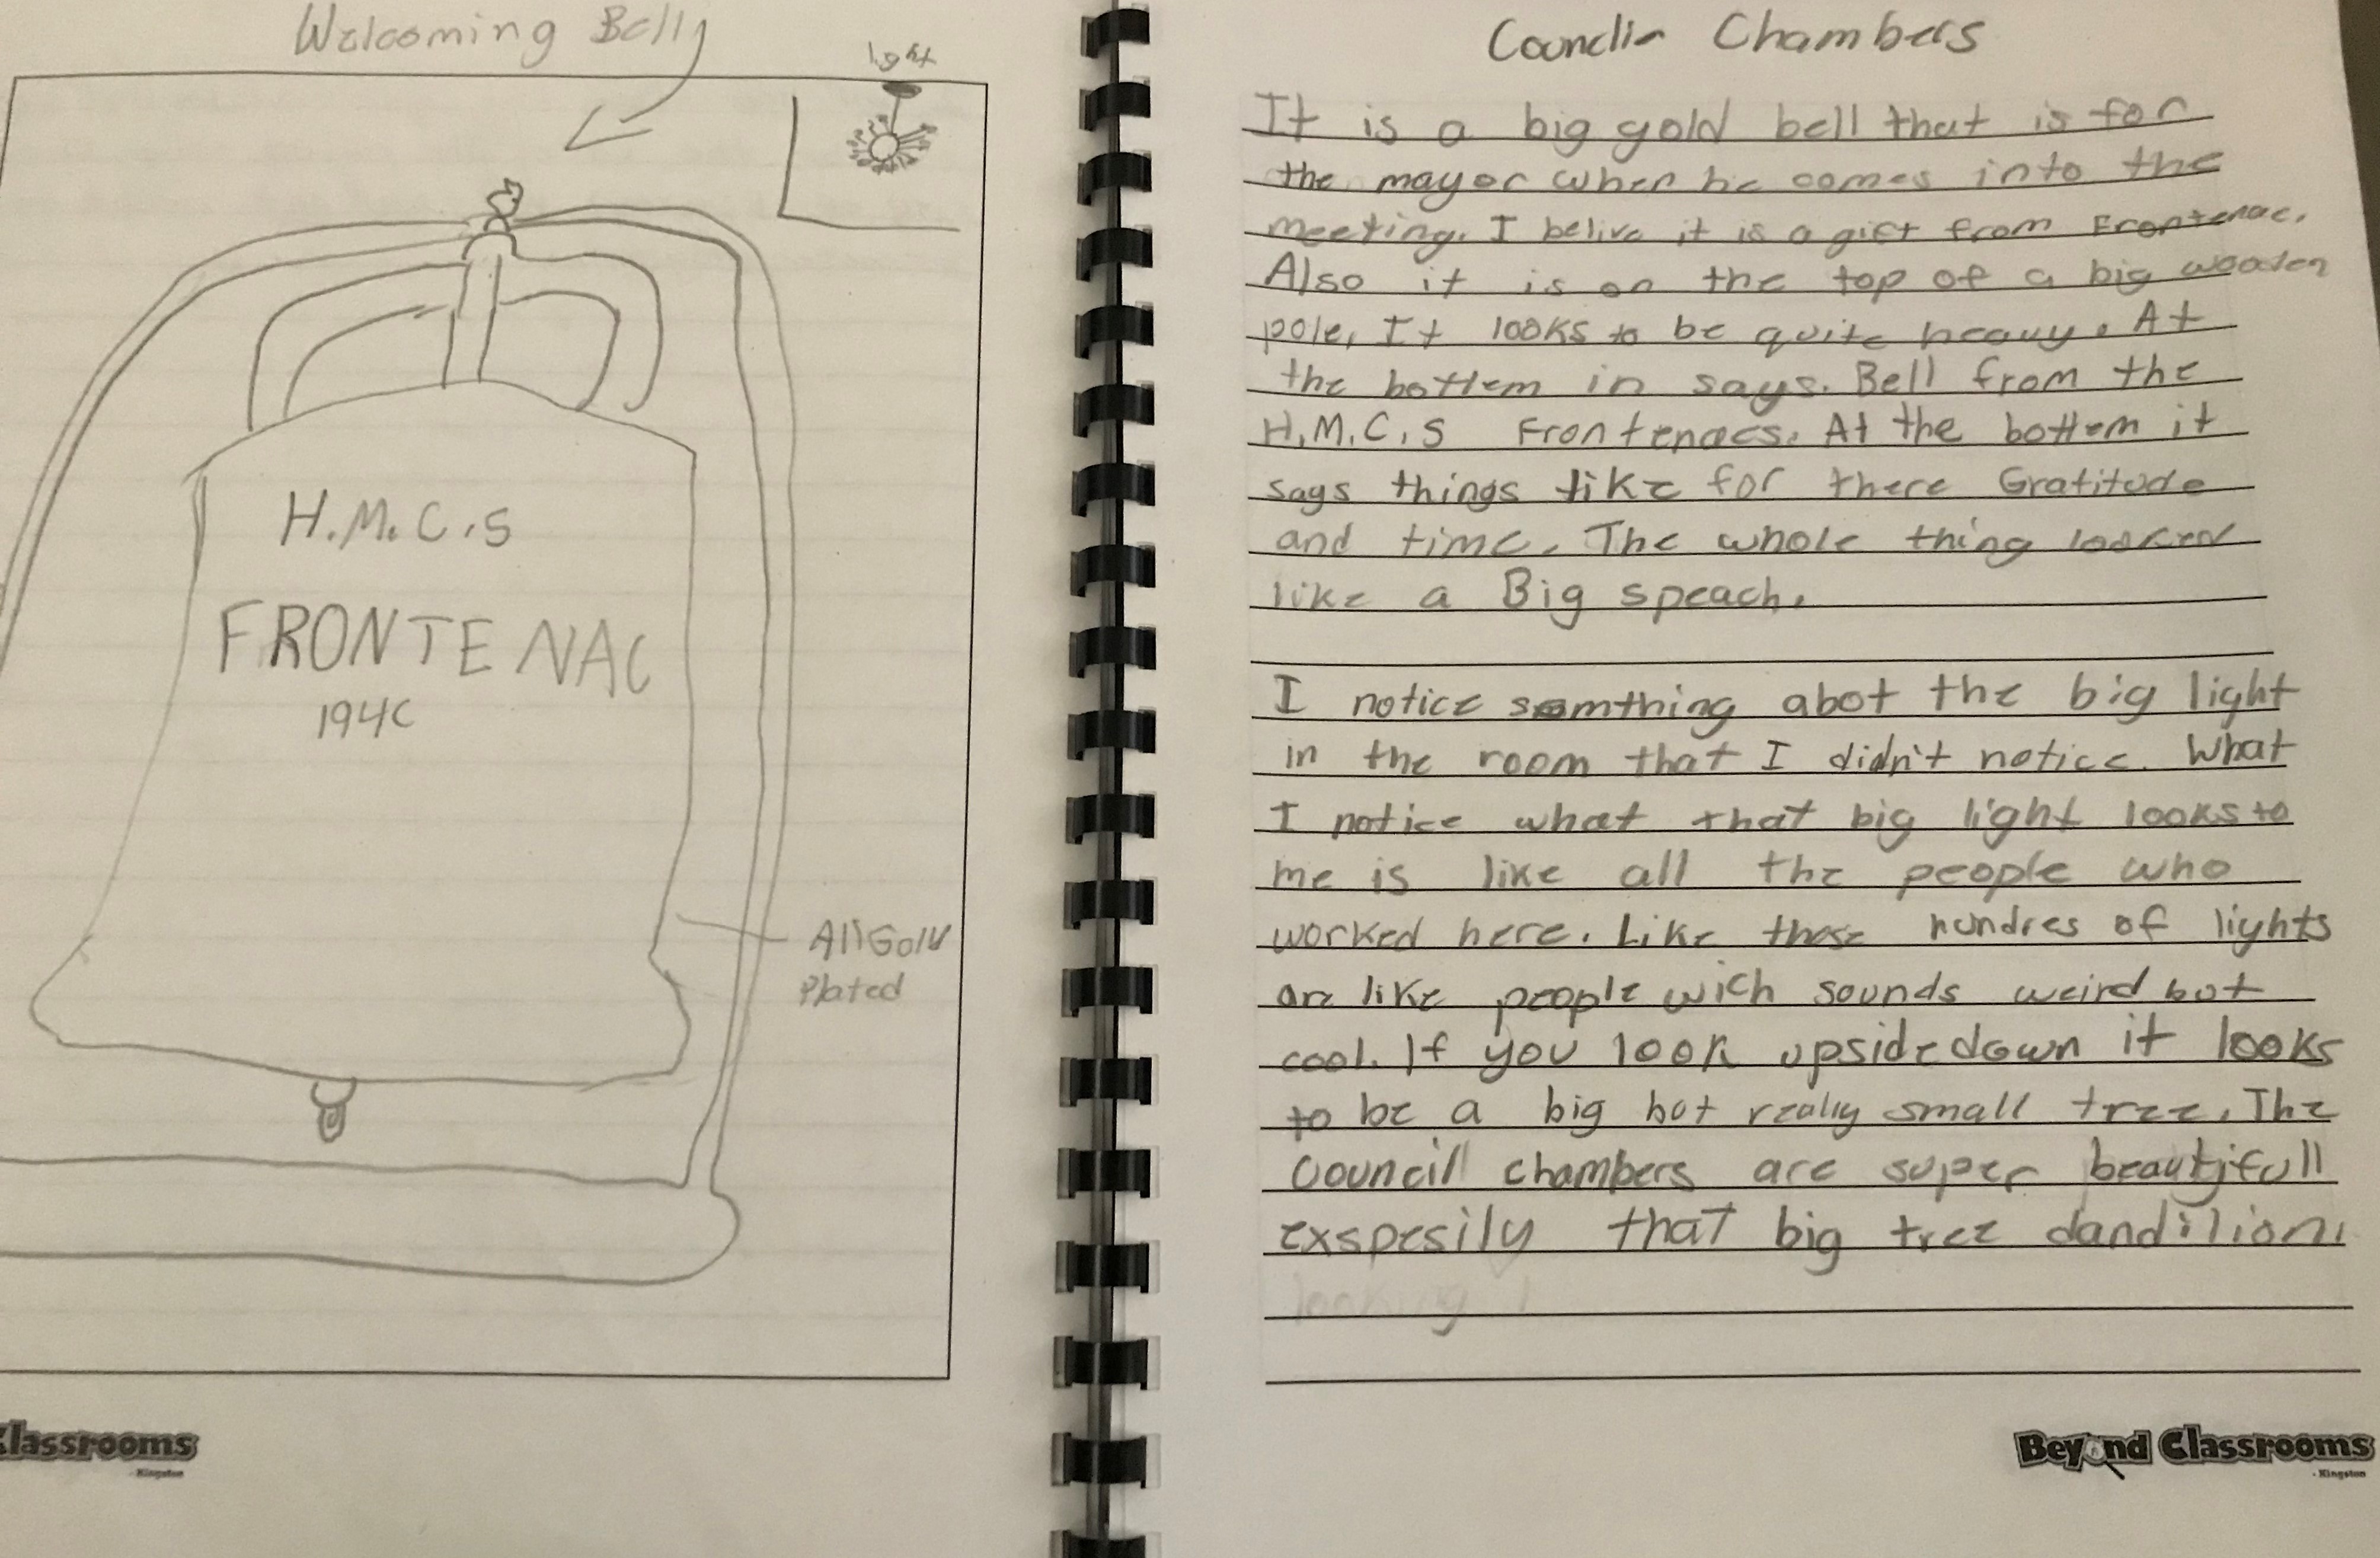 Welcoming Bell
light
H.M.C.S
FRONTENAC
194C
All Gold
Plated
Classrooms
- Kingston
Chambers
It is a big gold bell that is for
the mayor when he comes into the
meeting. I belive it is a gift from Frontenac.
Also it is on the top of a big wooden
pole, It looks to be quite heavy. At
the bottem in says. Bell from the
H.M.C.S Frontenacs. At the bottem it
says things like for there Gratitude
and time. The whole thing looked
like a Big speach.
I notice somthing abot the big light
in the room that I didn't notice. What
I notice what that big light looks to
me is like all the people who
worked here. Like those hundres of lights
are like people wich sounds weird but
cool. If you look upsidedown it looks
to be a big but really small tree. The
Council chambers are super beautifull
exspesily that big tree dandilion.
looking
Beyond Classrooms
- Kingston